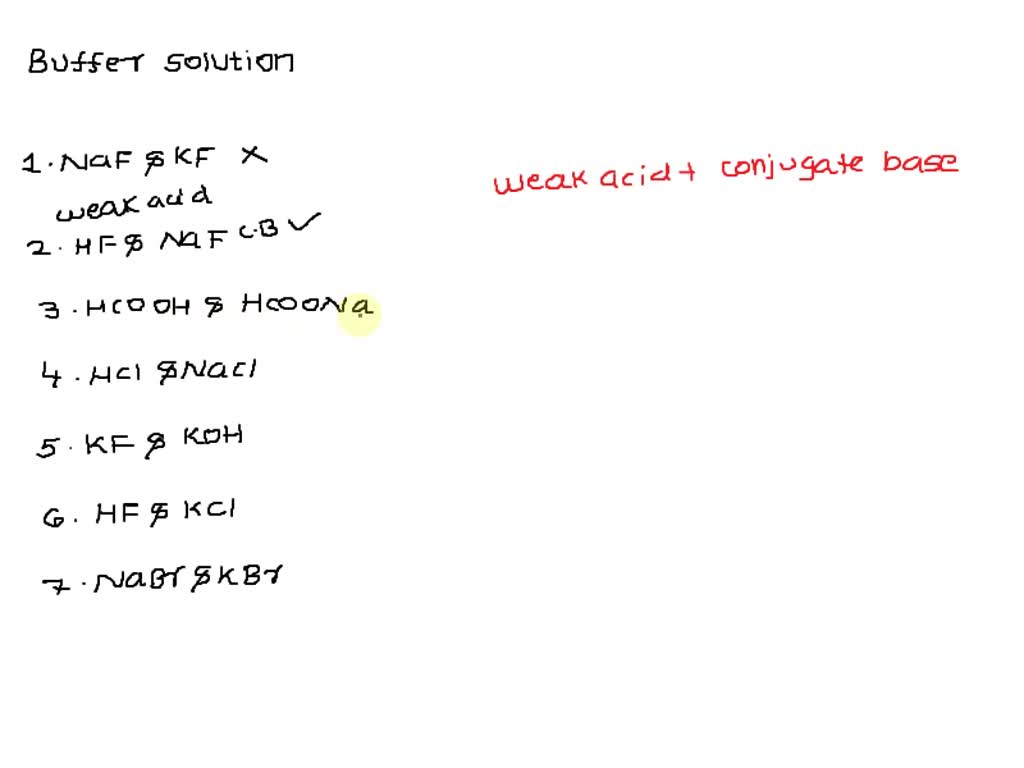 Buffer solution
1. NaF & KF ×
weak acid + conjugate base
weak acid
2. HF & NaF C.B ✓
3. HCOOH & HCOONa
4. HCl & NaCl
5. KF & KOH
6. HF & KCl
7. NaBr & KBr